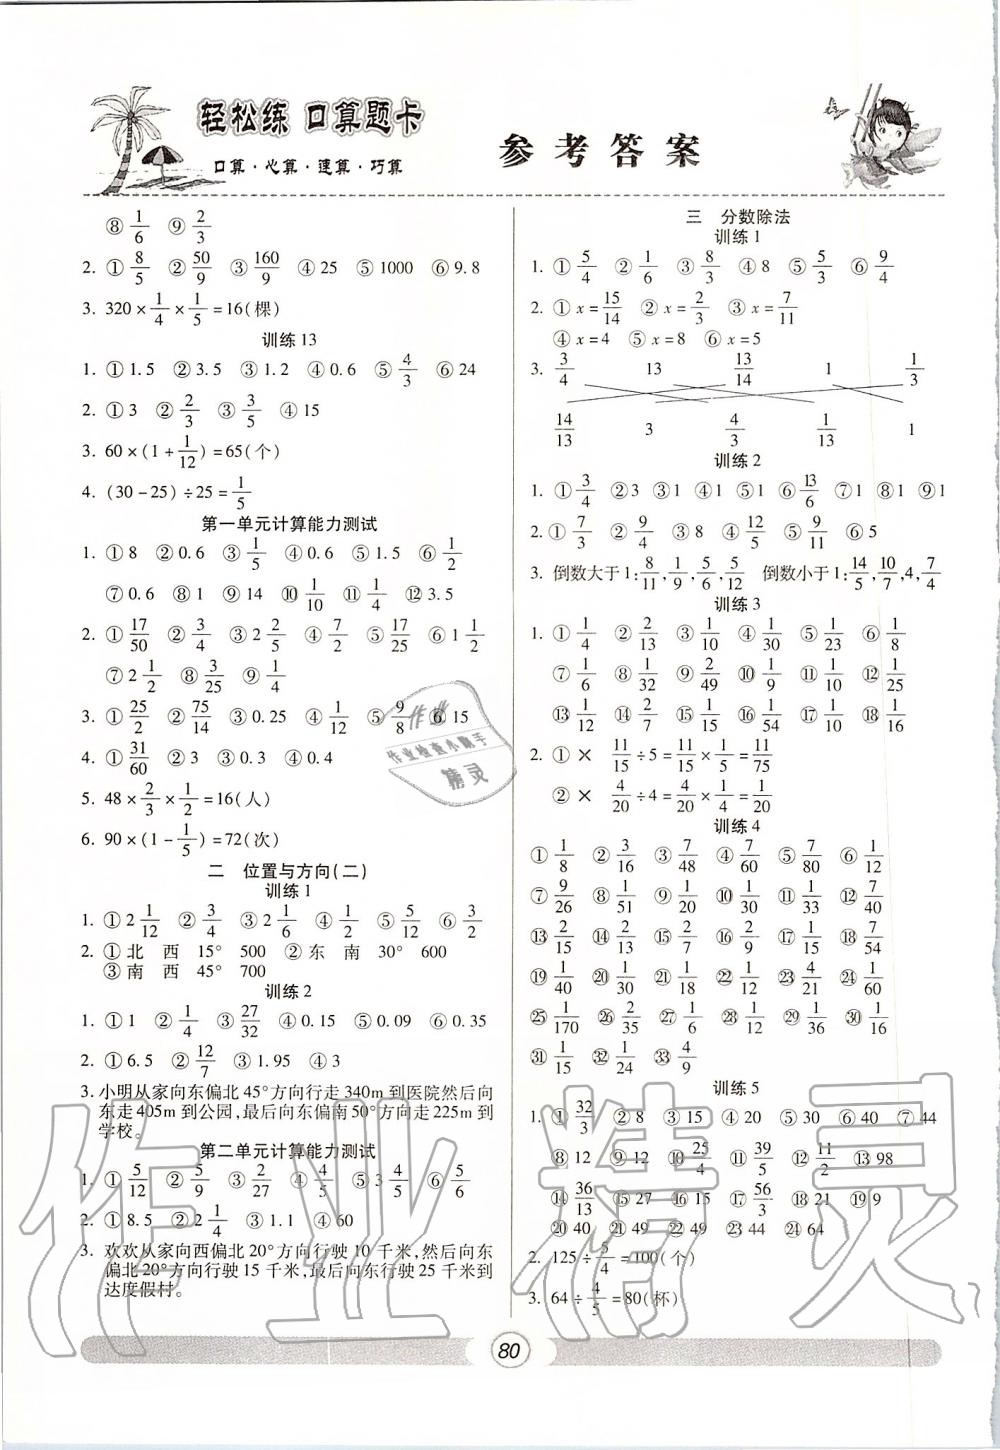 轻松练 口算题卡
口算·心算·速算·巧算
参考答案
⑧ 1/6 ⑨ 2/3
2. ① 8/5 ② 50/9 ③ 160/9 ④ 25 ⑤ 1000 ⑥ 9.8
3. 320×1/4×1/5=16(棵)
训练13
1. ① 1.5 ② 3.5 ③ 1.2 ④ 0.6 ⑤ 4/3 ⑥ 24
2. ① 3 ② 2/3 ③ 3/5 ④ 15
3. 60×(1+1/12)=65(个)
4. (30-25)÷25=1/5
第一单元计算能力测试
1. ① 8 ② 0.6 ③ 1/5 ④ 0.6 ⑤ 1.5 ⑥ 1/2
⑦ 0.6 ⑧ 1 ⑨ 14 ⑩ 1/10 ⑪ 1/4 ⑫ 3.5
2. ① 17/50 ② 3/4 ③ 2 2/5 ④ 7/2 ⑤ 17/25 ⑥ 1 1/2
⑦ 2 1/2 ⑧ 3/25 ⑨ 1/4
3. ① 25/2 ② 75/14 ③ 0.25 ④ 1/12 ⑤ 9/8 ⑥ 15
4. ① 31/60 ② 3 ③ 0.3 ④ 0.4
5. 48×2/3×1/2=16(人)
6. 90×(1-1/5)=72(次)
二 位置与方向(二)
训练1
1. ① 2 1/12 ② 3/4 ③ 2 1/6 ④ 1/2 ⑤ 5/12 ⑥ 3/2
2. ① 北 西 15° 500 ② 东 南 30° 600
③ 南 西 45° 700
训练2
1. ① 1 ② 1/4 ③ 27/32 ④ 0.15 ⑤ 0.09 ⑥ 0.35
2. ① 6.5 ② 12/7 ③ 1.95 ④ 3
3. 小明从家向东偏北45°方向行走340m到医院然后向
东走405m到公园,最后向东偏南50°方向走225m到
学校。
第二单元计算能力测试
1. ① 5/12 ② 5/9 ③ 2/27 ④ 4/5 ⑤ 3 4/5 ⑥ 5/6
2. ① 8.5 ② 2 1/4 ③ 1.1 ④ 60
3. 欢欢从家向西偏北20°方向行驶10千米,然后向东
偏北20°方向行驶15千米,最后向东行驶25千米到
达度假村。
三 分数除法
训练1
1. ① 5/4 ② 1/6 ③ 8/3 ④ 8 ⑤ 5/3 ⑥ 9/4
2. ① x=15/14 ② x=2/3 ③ x=7/11
④ x=4 ⑤ x=8 ⑥ x=5
3. 3/4 13 13/14 1 1/3
14/13 3 4/3 1/13 1
训练2
1. ① 3/4 ② 3 ③ 1 ④ 1 ⑤ 1 ⑥ 13/6 ⑦ 1 ⑧ 1 ⑨ 1
2. ① 7/3 ② 9/4 ③ 8 ④ 12/5 ⑤ 9/11 ⑥ 5
3. 倒数大于1:8/11,1/9,5/6,5/12 倒数小于1:14/5,10/7,4,7/4
训练3
1. ① 1/4 ② 2/13 ③ 1/10 ④ 1/30 ⑤ 1/23 ⑥ 1/8
⑦ 1/6 ⑧ 1/32 ⑨ 2/49 ⑩ 1/9 ⑪ 1/10 ⑫ 1/25
⑬ 1/12 ⑭ 2/7 ⑮ 1/15 ⑯ 1/54 ⑰ 1/10 ⑱ 1/16
2. ① × 11/15÷5=11/15×1/5=11/75
② × 4/20÷4=4/20×1/4=1/20
训练4
① 1/8 ② 3/16 ③ 7/48 ④ 7/60 ⑤ 7/80 ⑥ 1/12
⑦ 9/26 ⑧ 1/51 ⑨ 1/20 ⑩ 1/30 ⑪ 1/33 ⑫ 7/40
⑬ 2/15 ⑭ 2/13 ⑮ 2/7 ⑯ 2/9 ⑰ 1/15 ⑱ 7/54
⑲ 1/40 ⑳ 1/30 ㉑ 1/18 ㉒ 1/12 ㉓ 4/21 ㉔ 1/60
㉕ 1/170 ㉖ 2/35 ㉗ 1/6 ㉘ 1/12 ㉙ 1/36 ㉚ 1/16
㉛ 1/15 ㉜ 1/5 ㉝ 4/9
训练5
1. ① 32/3 ② 8 ③ 15 ④ 20 ⑤ 30 ⑥ 40 ⑦ 44
⑧ 12 ⑨ 12 ⑩ 25/4 ⑪ 39/5 ⑫ 11/2 ⑬ 98
⑭ 36/13 ⑮ 27 ⑯ 15 ⑰ 56/3 ⑱ 21 ⑲ 9
⑳ 40 ㉑ 49 ㉒ 49 ㉓ 44 ㉔ 64
2. 125÷5/4=100(个)
3. 64÷4/5=80(杯)
作业
作业检查小助手
精灵
作业精灵
80